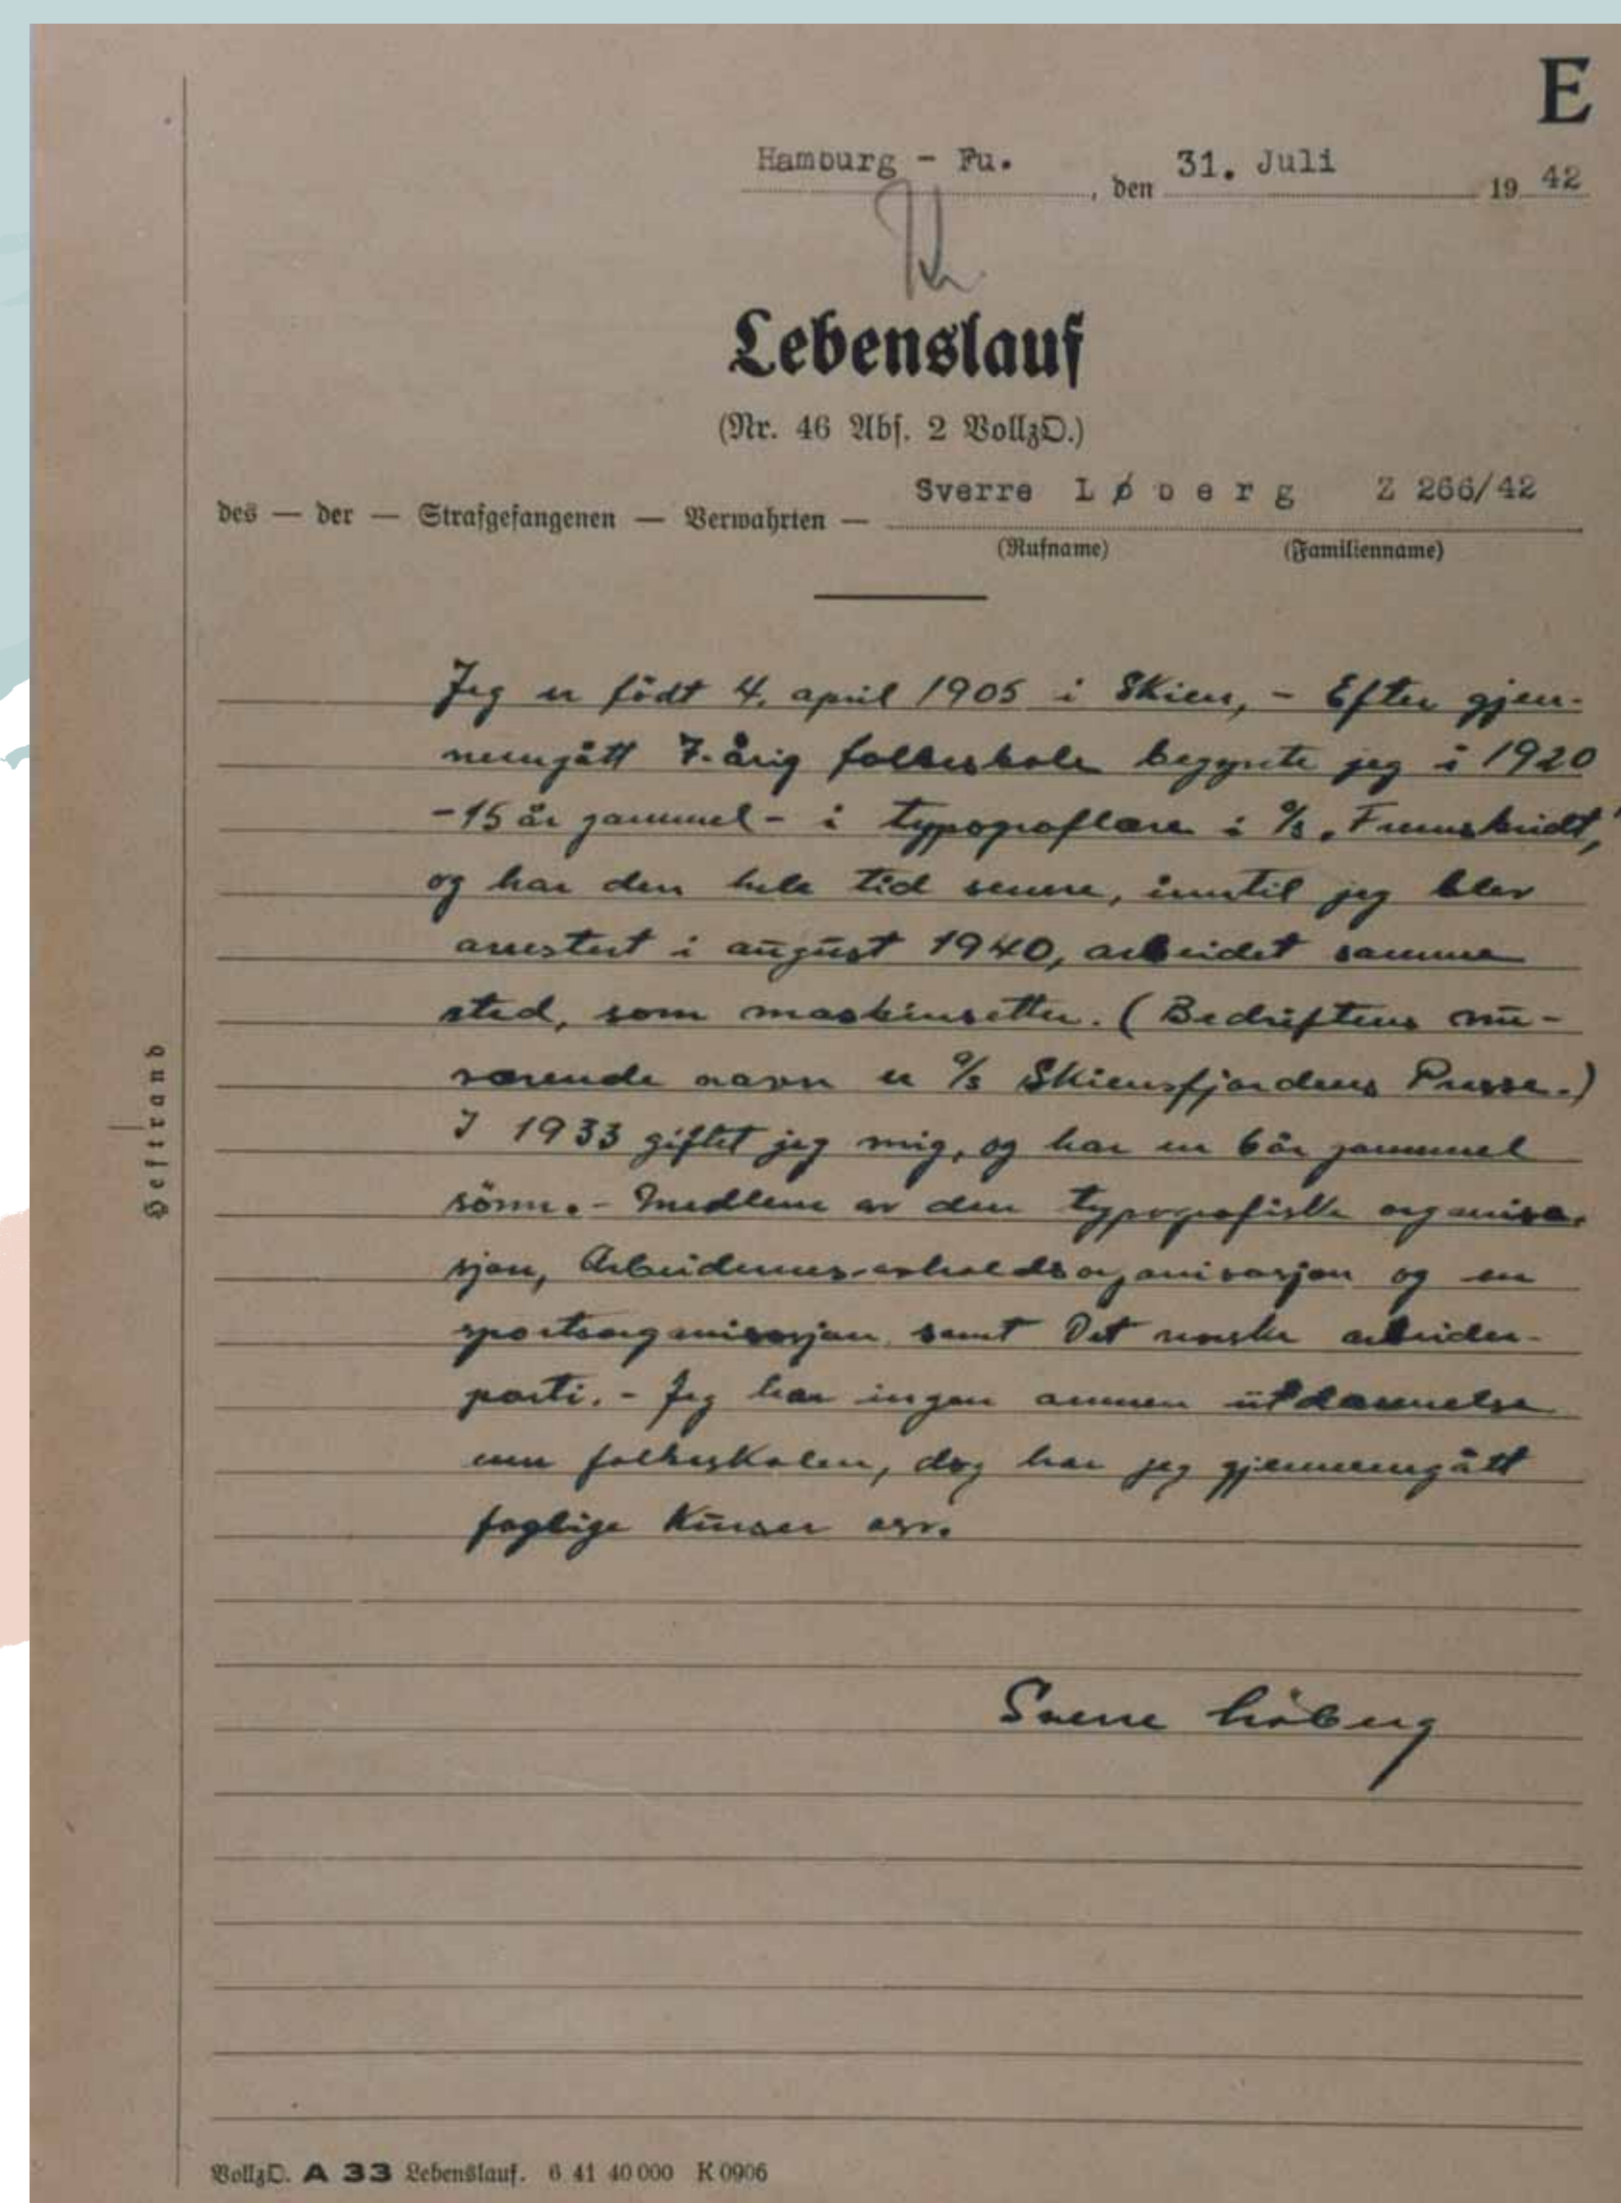 E
Hamburg - Fu., den 31. Juli 19 42
Lebenslauf
(Nr. 46 Abs. 2 VollzO.)
des — der — Strafgefangenen — Verwahrten — Sverre Løberg Z 266/42
(Rufname) (Familienname)
Jeg er födt 4. april 1905 i Skien, - Efter gjen-
nemgått 7-årig folkeskole begynte jeg i 1920
-15 år gammel- i typograflære i A/s „Fremskridt,"
og har den hele tid senere, inntil jeg blev
arrestert i august 1940, arbeidet samme
sted, som maskinsetter. (Bedriftens nu-
værende navn er A/s Skiensfjordens Presse.)
I 1933 giftet jeg mig, og har en 6 år gammel
sönn. - Medlem av den typografiske organisa-
sjon, Arbeidernes avholdsorganisasjon og en
sportsorganisasjon samt Det norske arbeider-
parti. - Jeg har ingen annen utdannelse
enn folkeskolen, dog har jeg gjennemgått
faglige kurser osv.
Sverre Löberg
Heftrand
VollzO. A 33 Lebenslauf. 6 41 40 000 K 0906